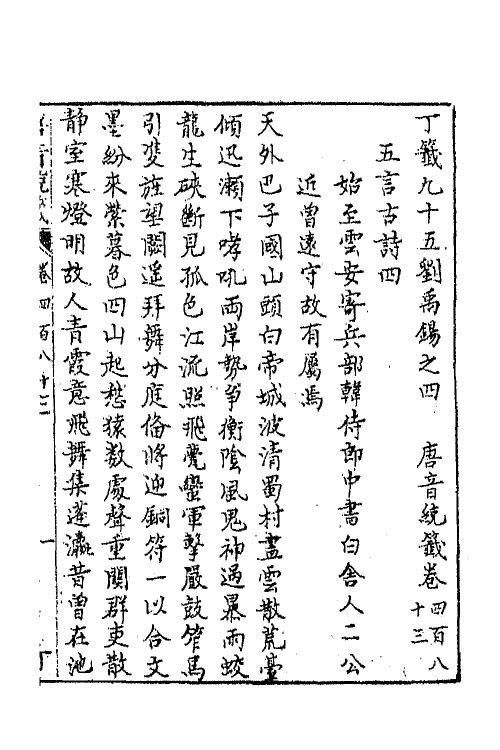 丁籤九十五劉禹錫之四　唐音統籤卷四百八十三
五言古詩四
始至雲安寄兵部韓侍郎中書白舍人二公
近曾遠守故有屬焉
天外巴子國山頭白帝城波清蜀村盡雲散荒臺
傾迅瀨下哮吼兩岸勢爭衡陰風鬼神過暴雨蛟
龍生硤斷見孤色江流照飛甍蠻軍擊嚴鼓筰馬
引雙旌望闕遥拜舞分庭備將迎銅符一以合文
墨紛來縈暮色四山起愁猿數處聲重關群吏散
静室寒燈明故人青霞意飛舞集蓬瀛昔曾在池
唐音統籤
卷四百八十三
一
丁